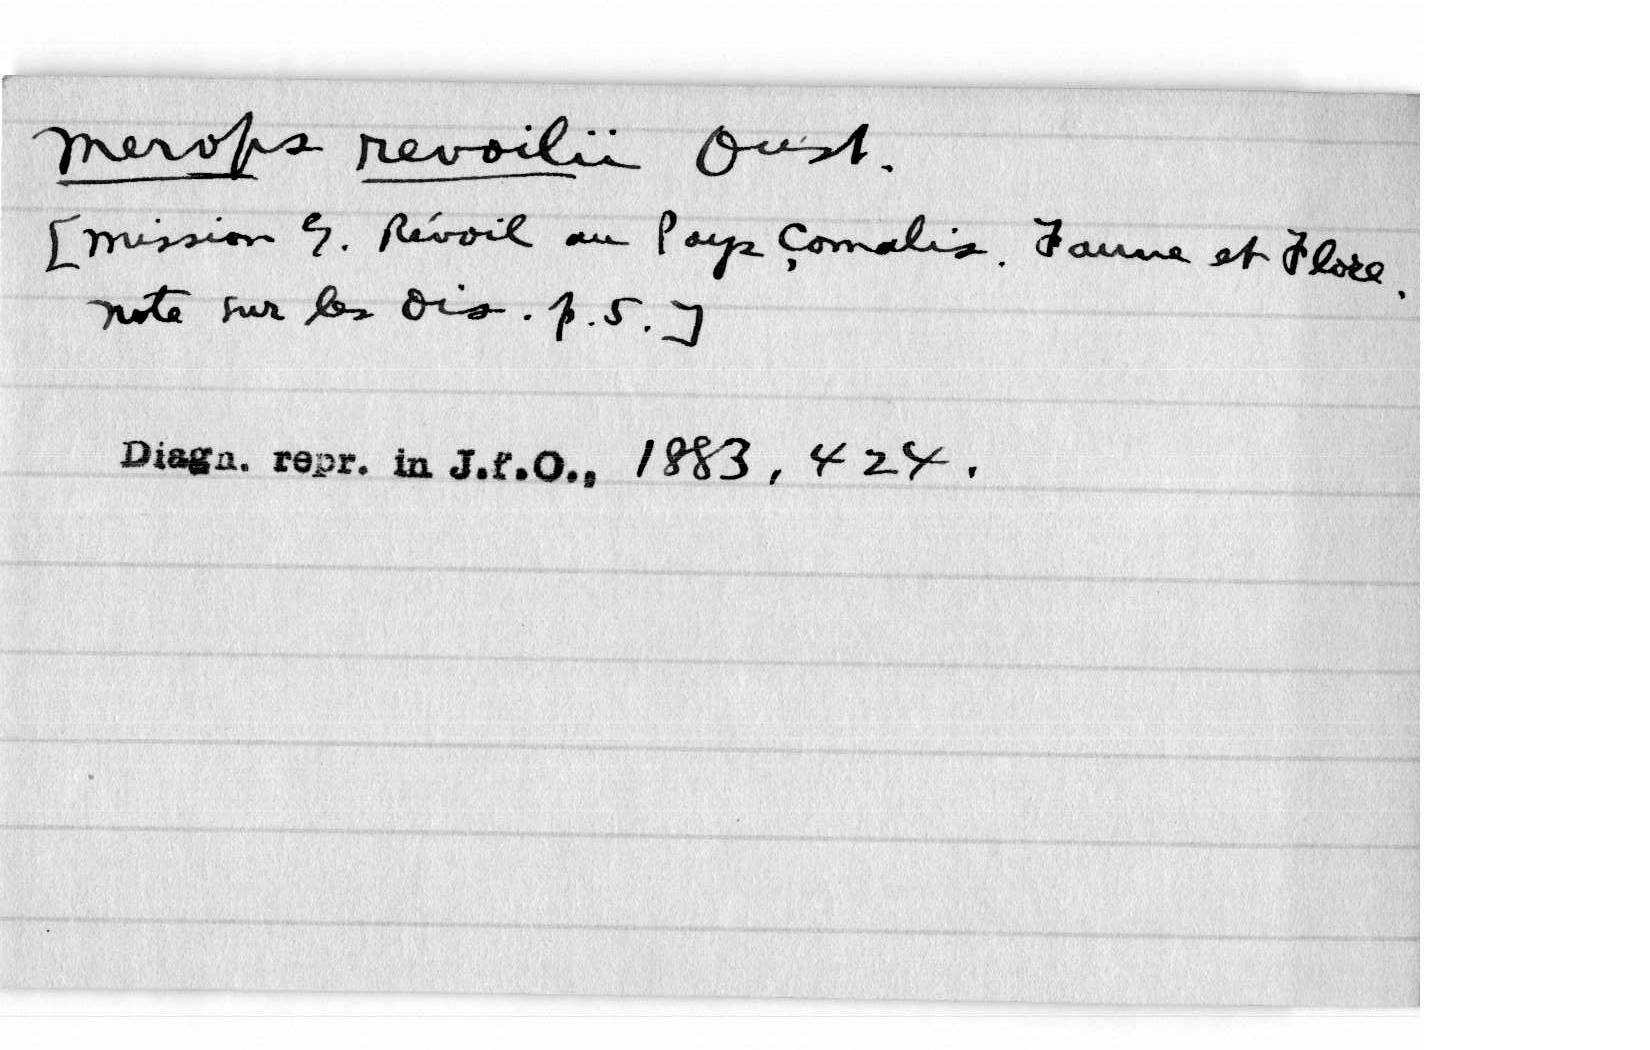 Merops revoilii Oust.
[Mission G. Révoil au Pays Çomalis. Faune et Flore.
Note sur les Ois. p. 5.]
Diagn. repr. in J.f.O., 1883, 424.